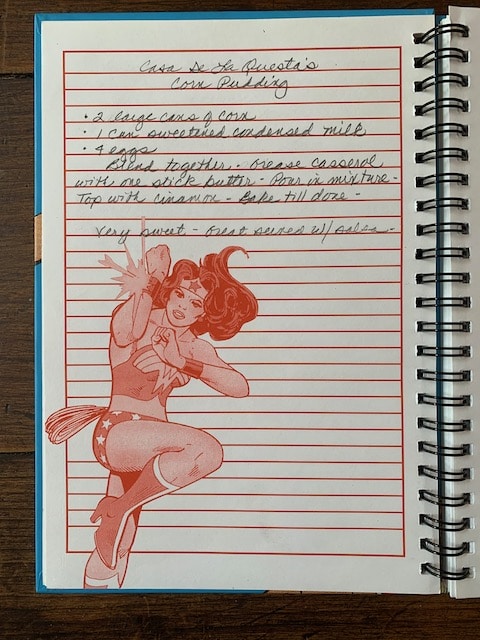 Casa De La Questa's
Corn Pudding
• 2 large cans of corn
• 1 can sweetened condensed milk
• 4 eggs
Blend together - Grease casserol
with one stick butter - Pour in mixture -
Top with cinamon - Bake till done -
Very sweet - Great served w/ salsa -